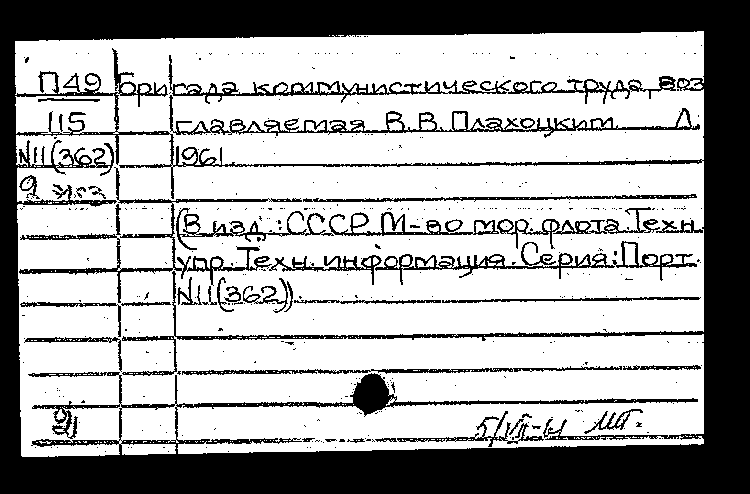 П49 Бригада коммунистического труда, воз
115 главляемая В.В. Плахоцким Л.
N11(362) 1961.
2 экз
(В изд.: СССР. М-во мор. флота. Техн.
упр. Техн. информация. Серия: Порт.
N11(362)).
5/VII-61